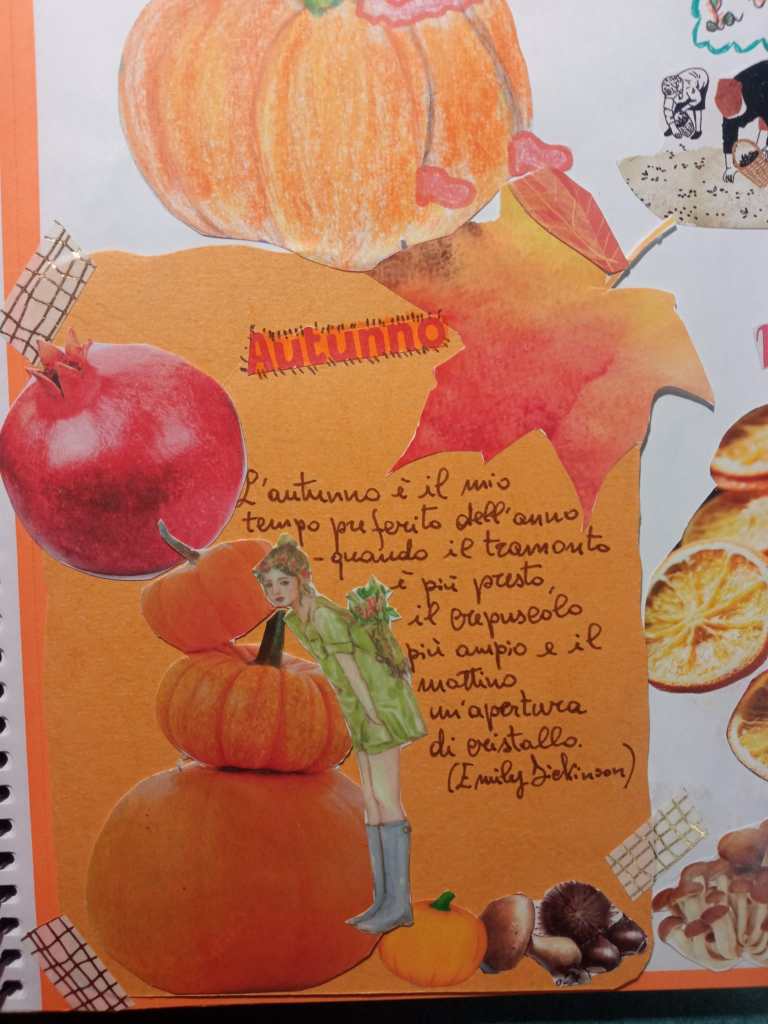 Autunno
L'autunno è il mio
tempo preferito dell'anno
- quando il tramonto
è più presto,
il crepuscolo
più ampio e il
mattino
un'apertura
di cristallo.
(Emily Dickinson)